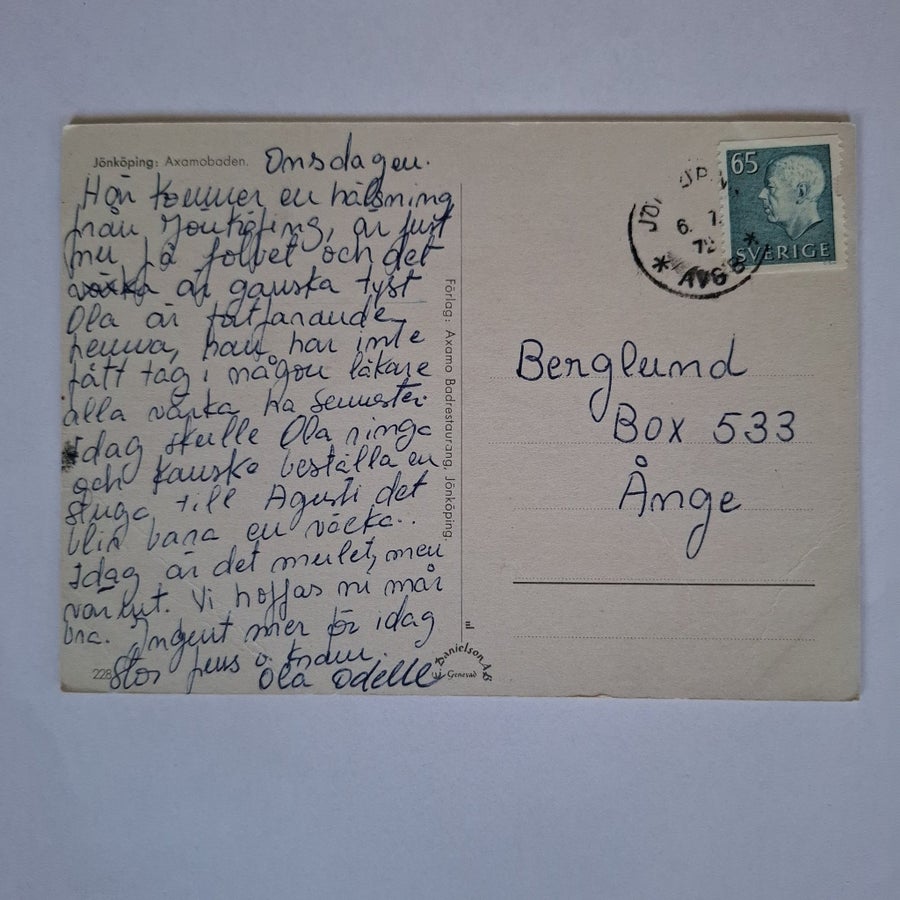 Jönköping: Axamobaden.
Onsdagen.
Här kommer en hälsning
från Jönköping, är just
nu på jobbet och det
är ganska tyst
Ola är fortfarande
hemma, han har inte
fått tag i någon läkare
alla värka ha semester.
Idag skulle Ola ringa
och kanske beställa en
stuga till Agusti det
blir bara en väcka..
Idag är det mulet, men
varmt. Vi hoppas ni mår
bra. Inget mer för idag
Stor puss o kram.
Ola Odelle
228
Förlag: Axamo Badrestaurang, Jönköping.
Danielson
Genevad
65
SVERIGE
6. 7.
72
* AVG B *
Berglund
Box 533
Ånge